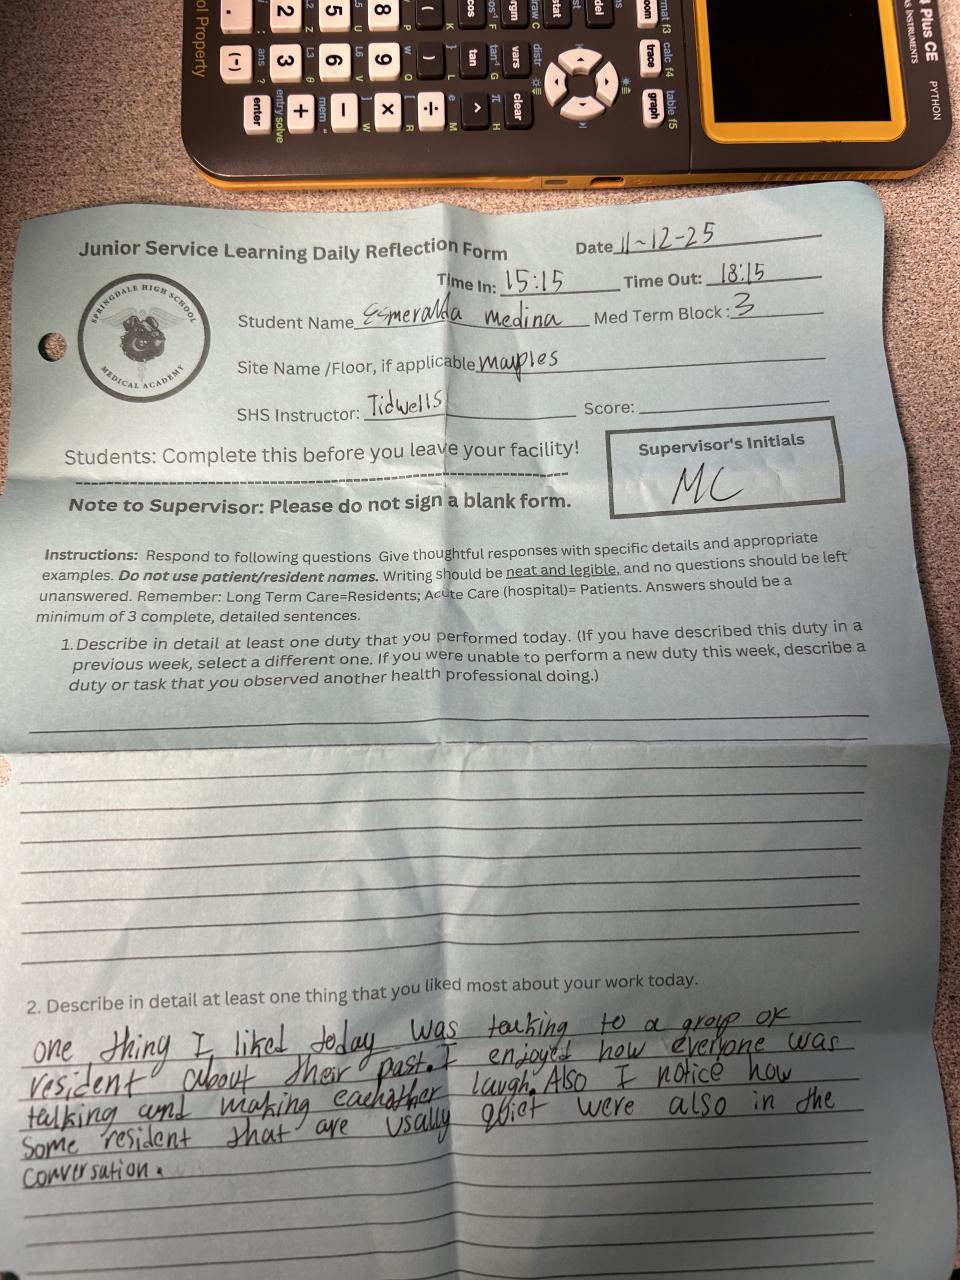 ol Property
4 Plus CE
AS INSTRUMENTS
PYTHON
format f3
calc f4
table f5
oom
trace
graph
del
stat
draw C
distr
rgm
vars
clear
cos
tan
^
cos⁻¹ F
tan⁻¹ G
π H
(
)
÷
K
} L
e M
8
9
×
P
w Q
[ R
5
6
−
L5 U
L6 V
] W
2
3
+
L2 Z
L3 θ
mem "
.
(-)
enter
i :
ans ?
entry solve
Junior Service Learning Daily Reflection Form
Date 11-12-25
Time In: 15:15 Time Out: 18:15
SPRINGDALE HIGH SCHOOL
MEDICAL ACADEMY
Student Name Esmeralda medina Med Term Block: 3
Site Name /Floor, if applicable maples
SHS Instructor: Tidwells Score:
Students: Complete this before you leave your facility!
Supervisor's Initials
MC
Note to Supervisor: Please do not sign a blank form.
Instructions: Respond to following questions Give thoughtful responses with specific details and appropriate
examples. Do not use patient/resident names. Writing should be neat and legible, and no questions should be left
unanswered. Remember: Long Term Care=Residents; Acute Care (hospital)= Patients. Answers should be a
minimum of 3 complete, detailed sentences.
1. Describe in detail at least one duty that you performed today. (If you have described this duty in a
previous week, select a different one. If you were unable to perform a new duty this week, describe a
duty or task that you observed another health professional doing.)
2. Describe in detail at least one thing that you liked most about your work today.
one thing I liked today was talking to a group of
resident about their past. I enjoyed how everyone was
talking and making eachother laugh. Also I notice how
some resident that are usally quiet were also in the
conversation.